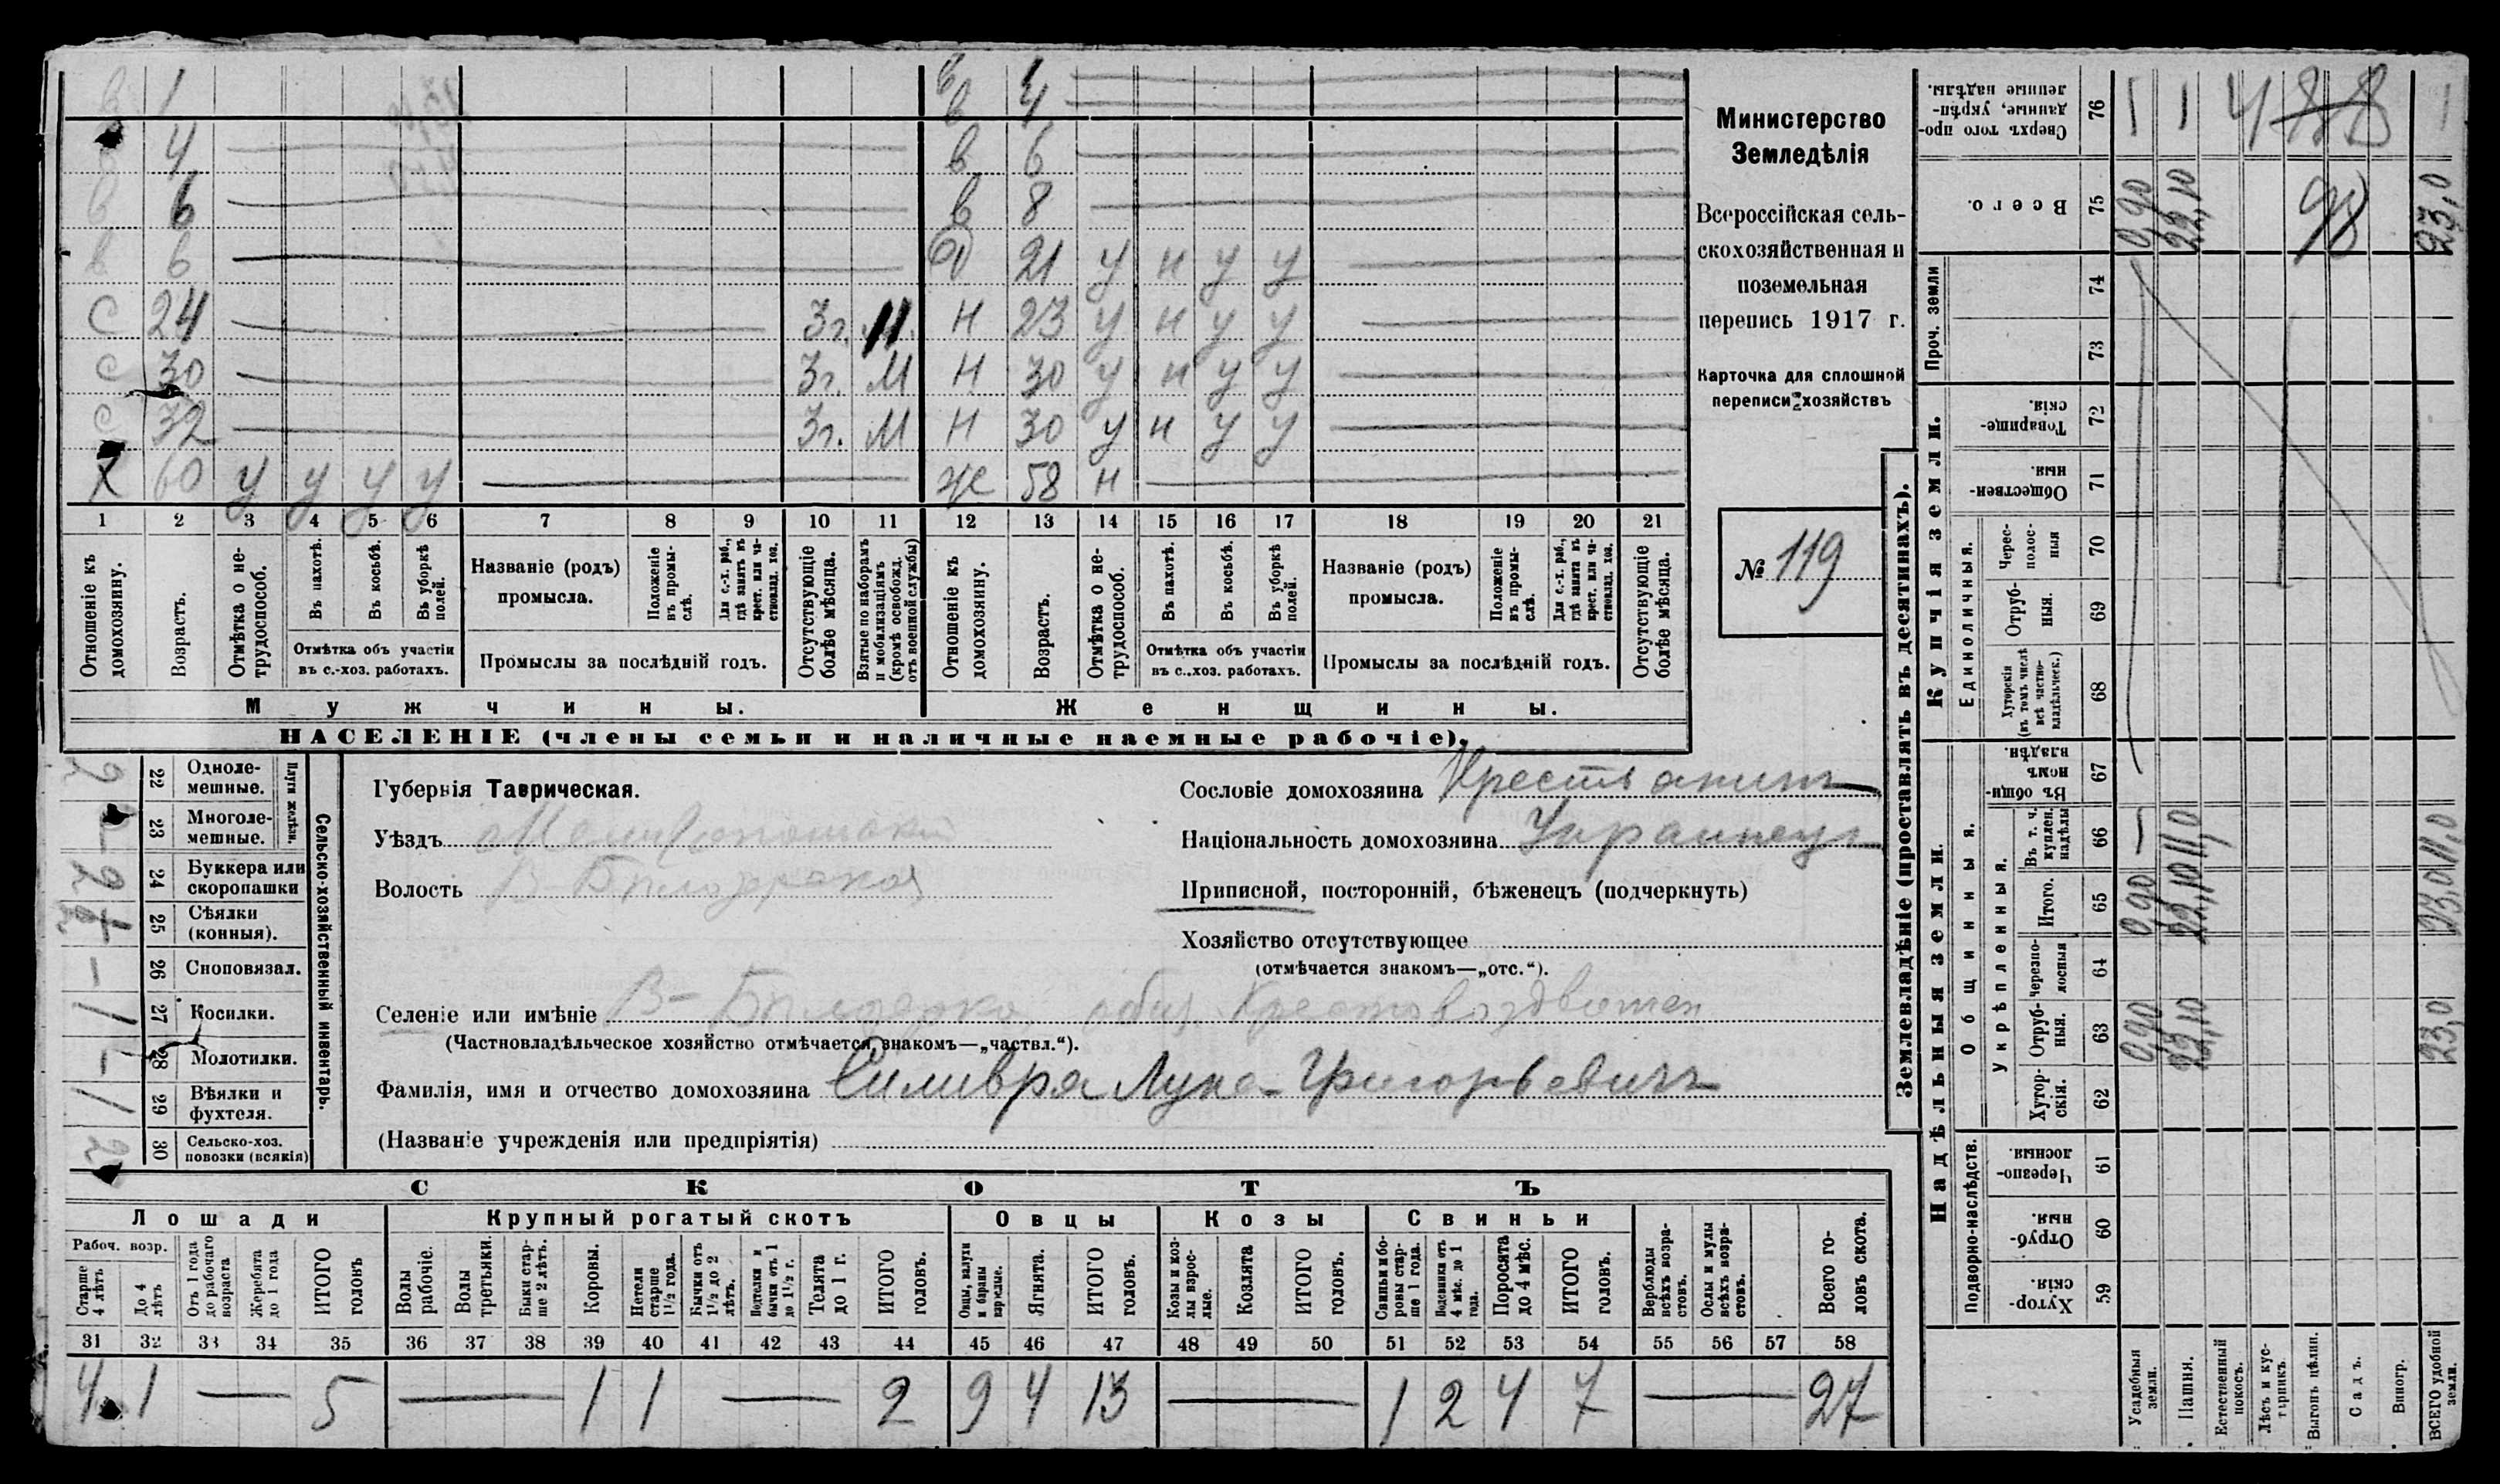 в 1 в 4
в 4
4 в 6
в 6 в 8
в 6 21 у н у у
с 24 3г. М. н 23 у н у у
с 30 3г. М н 30 у н у у
с 32 3г. М н 30 у н у у
х 60 у у у у же 58 н
1 2 3 4 5 6 7 8 9 10 11 12 13 14 15 16 17 18 19 20 21
Отношеніе къ домохозяину.
Возрастъ.
Отмѣтка о нетрудоспособ.
Въ пахотѣ.
Въ косьбѣ.
Въ уборкѣ полей.
Отмѣтка объ участіи
въ с.-хоз. работахъ.
Названіе (родъ)
промысла.
Положеніе въ промыслѣ.
Для с.-х. раб., гдѣ занятъ въ крест. или частновлад. хоз.
Промыслы за послѣдній годъ.
Отсутствующіе болѣе мѣсяца.
Взятые по наборамъ и мобилизаціямъ (кромѣ освобожд. отъ военной службы)
Отношеніе къ домохозяину.
Возрастъ.
Отмѣтка о нетрудоспособ.
Въ пахотѣ.
Въ косьбѣ.
Въ уборкѣ полей.
Отмѣтка объ участіи
въ с..хоз. работахъ.
Названіе (родъ)
промысла.
Положеніе въ промыслѣ.
Для с.-х. раб., гдѣ занята въ крест. или частновлад. хоз.
Промыслы за послѣдній годъ.
Отсутствующіе болѣе мѣсяца.
Мужчины. Женщины.
НАСЕЛЕНІЕ (члены семьи и наличные наемные рабочіе).
Министерство
Земледѣлія
Всероссійская сель-
скохозяйственная и
поземельная
перепись 1917 г.
Карточка для сплошной
переписи хозяйствъ
№ 119
Сельско-хозяйственный инвентарь.
Плуги желѣзн.
22 Однолемешные. 2
23 Многолемешные. –
24 Буккера или скоропашки 2
25 Сѣялки (конныя).
26 Сноповязал. –
27 Косилки. 1
28 Молотилки. –
29 Вѣялки и фухтеля. 1
30 Сельско-хоз. повозки (всякія) 2
Губернія Таврическая.
Уѣздъ Мелитопольскій
Волость В-Бѣлозерская
Сословіе домохозяина Крестьянинъ
Національность домохозяина Украинецъ
Приписной, посторонній, бѣженецъ (подчеркнуть)
Хозяйство отсутствующее
(отмѣчается знакомъ—„отс.“).
Селеніе или имѣніе В-Бѣлозерка, общ. Крестовоздвижен
(Частновладѣльческое хозяйство отмѣчается знакомъ—„частвл.“).
Фамилія, имя и отчество домохозяина Силивра Лука Григорьевичъ
(Названіе учрежденія или предпріятія)
СКОТЪ
Лошади Крупный рогатый скотъ Овцы Козы Свиньи
Рабоч. возр.
Старше 4 лѣтъ
До 4 лѣтъ
Отъ 1 года до рабочаго возраста
Жеребята до 1 года
ИТОГО головъ
Волы рабочіе.
Волы третьяки.
Быки старше 2 лѣтъ.
Коровы.
Нетели старше 1½ года.
Бычки отъ 1½ до 2 лѣтъ.
Подтелки и бычки отъ 1 до 1½ г.
Телята до 1 г.
ИТОГО головъ.
Овцы, валухи и бараны взрослые.
Ягнята.
ИТОГО головъ.
Козы и козлы взрослые.
Козлята
ИТОГО головъ.
Свиньи и боровы старше 1 года.
Подсвинки отъ 4 мѣс. до 1 года.
Поросята до 4 мѣс.
ИТОГО головъ.
Верблюды всѣхъ возрастовъ.
Ослы и мулы всѣхъ возрастовъ.
Всего головъ скота.
31 32 33 34 35 36 37 38 39 40 41 42 43 44 45 46 47 48 49 50 51 52 53 54 55 56 57 58
4 1 — 5 — 1 1 — 2 9 4 13 — 1 2 4 7 — 27
Землевладѣніе (проставлять въ десятинахъ).
Надѣльныя земли.
Подворно-наслѣдств.
Хуторскія. 59
Отрубныя. 60
Черезполосныя. 61
Общинныя.
Укрѣпленныя.
Хуторскія. 62
Отрубныя. 63
Черезполосныя 64
Итого. 65
Въ т. ч. куплен. надѣлы 66
Въ общинномъ владѣн. 67
Купчія земли.
Единоличныя.
Хуторскія (въ томъ числѣ всѣ частновладѣльческ.) 68
Отрубныя. 69
Чересполосныя 70
Общественныя. 71
Товарищескія. 72
Проч. земли
73
74
Всего. 75
Сверхъ того проданные, укрѣпленные надѣлы. 76
Усадебныя земли. 0,90 0,90 — 0,90
Пашня. 22,10 22,10 11,0 22,10
Естественный покосъ.
Лѣсъ и кустарникъ.
Выгонъ цѣлин.
Садъ.
Виногр.
ВСЕГО удобной земли. 23,0 23,0 11,0 23,0
98